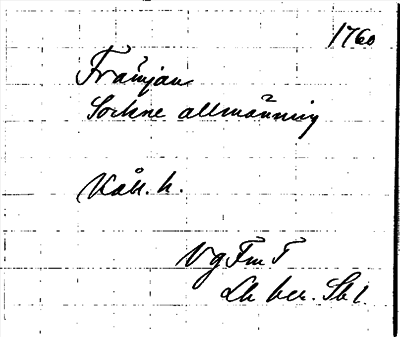 1760
Främjan
Sockne allmänning
Kåk. h.
VgFmT
Lh ber. Sbl.